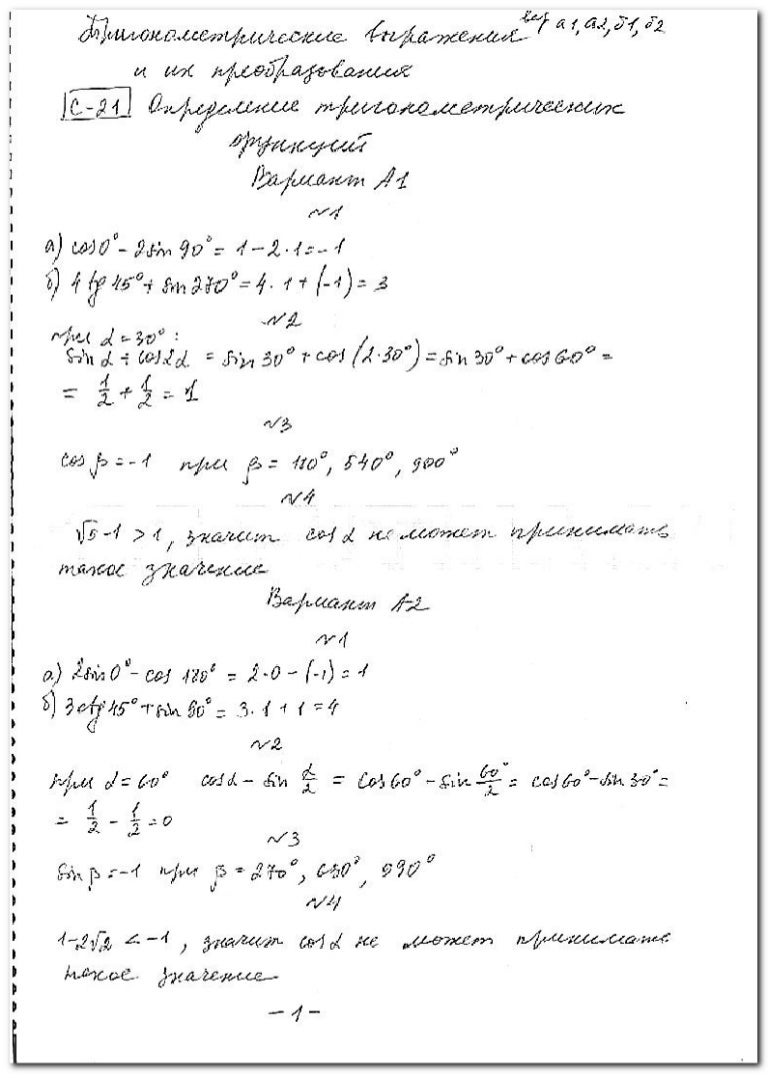 Тригонометрические выражения вар а1, а2, б1, б2
и их преобразования
С-21 Определение тригонометрических
функций
Вариант А1
№1
а) cos0° - 2sin 90° = 1 - 2·1 = -1
б) 4 tg 45° + sin 270° = 4·1 + (-1) = 3
№2
при α = 30°:
sin α + cos2α = sin 30° + cos (2·30°) = sin 30° + cos 60° =
= 1/2 + 1/2 = 1
№3
cos β = -1 при β = 180°, 540°, 900°
№4
√5 - 1 > 1, значит cos α не может принимать
такое значение
Вариант А2
№1
а) 2sin0° - cos 180° = 2·0 - (-1) = 1
б) 3ctg 45° + sin 90° = 3·1 + 1 = 4
№2
при α = 60° cosα - sin α/2 = cos60° - sin 60°/2 = cos60° - sin 30° =
= 1/2 - 1/2 = 0
№3
sin β = -1 при β = 270°, 630°, 990°
№4
1-2√2 < -1, значит cos α не может принимать
такое значение
- 1 -